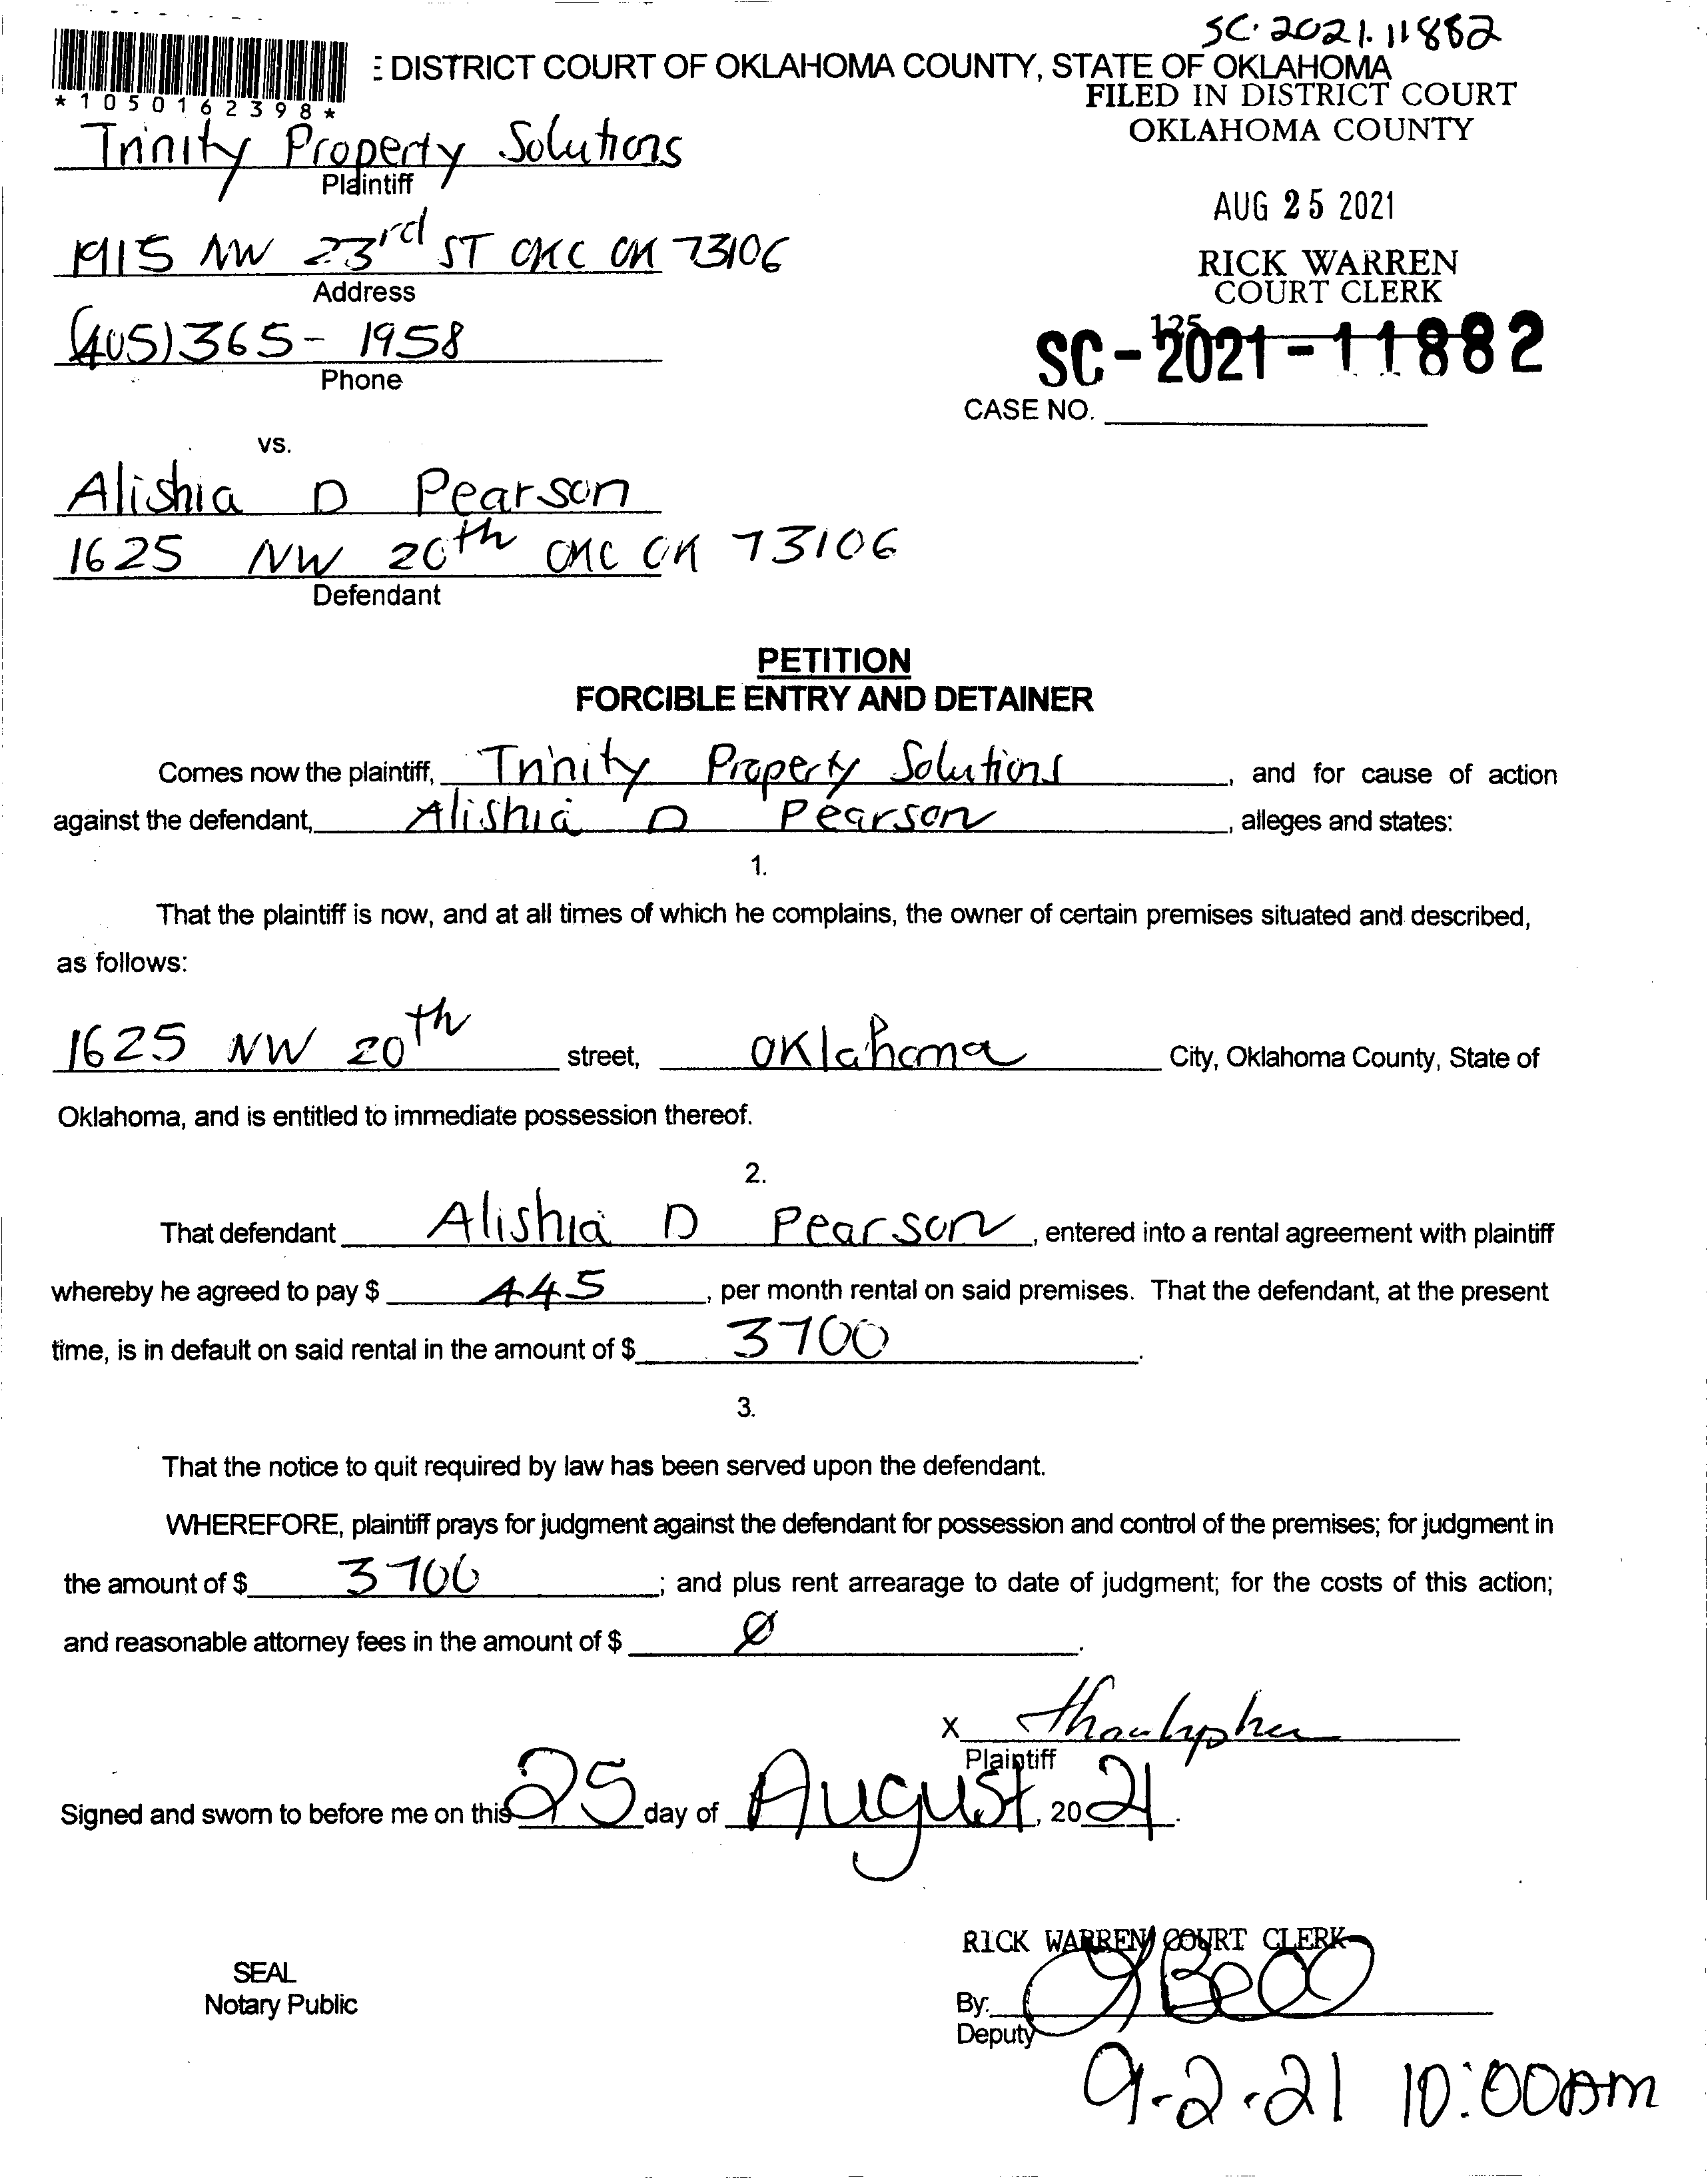 SC. 2021. 11882
E DISTRICT COURT OF OKLAHOMA COUNTY, STATE OF OKLAHOMA
*1050162398*
FILED IN DISTRICT COURT
OKLAHOMA COUNTY
Trinity Property Solutions
Plaintiff
AUG 25 2021
1915 NW 23rd ST OKC OK 73106
Address
RICK WARREN
COURT CLERK
(405) 365-1958
Phone
125
SC-2021-11882
CASE NO.
vs.
Alishia D Pearson
1625 NW 20th OKC OK 73106
Defendant
PETITION
FORCIBLE ENTRY AND DETAINER
Comes now the plaintiff, Trinity Property Solutions, and for cause of action
against the defendant, Alishia D Pearson, alleges and states:
1.
That the plaintiff is now, and at all times of which he complains, the owner of certain premises situated and described,
as follows:
1625 NW 20th street, Oklahoma City, Oklahoma County, State of
Oklahoma, and is entitled to immediate possession thereof.
2.
That defendant Alishia D Pearson, entered into a rental agreement with plaintiff
whereby he agreed to pay $ 445, per month rental on said premises. That the defendant, at the present
time, is in default on said rental in the amount of $ 3700.
3.
That the notice to quit required by law has been served upon the defendant.
WHEREFORE, plaintiff prays for judgment against the defendant for possession and control of the premises; for judgment in
the amount of $ 3700; and plus rent arrearage to date of judgment; for the costs of this action;
and reasonable attorney fees in the amount of $ Ø.
X
Plaintiff
Signed and sworn to before me on this 25 day of August, 2021.
RICK WARREN COURT CLERK
SEAL
Notary Public
By:
Deputy
9-2-21 10:00AM